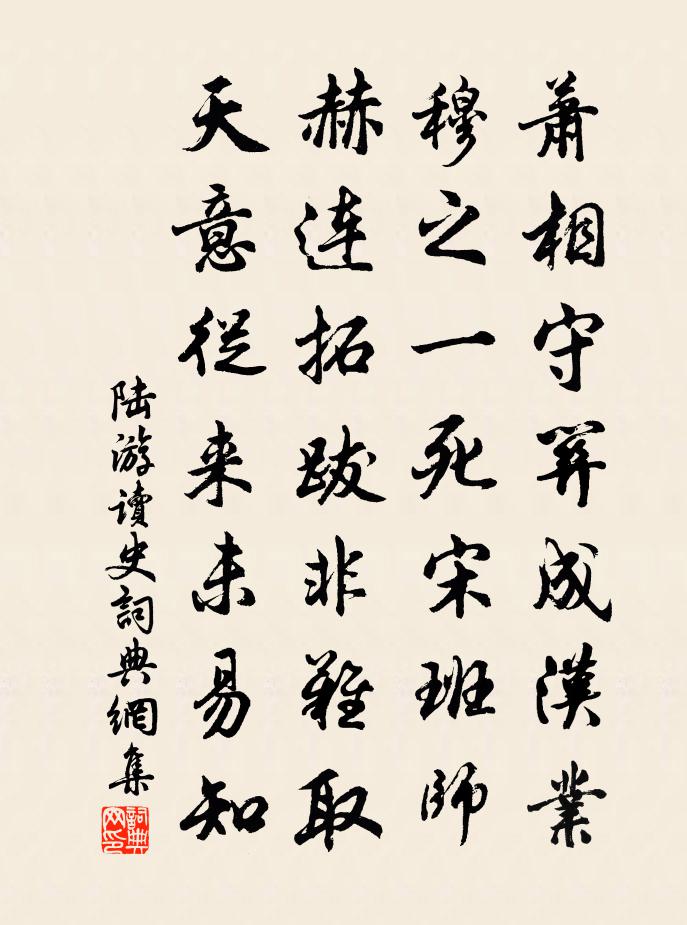 蕭相守關成漢業
穆之一死宋班師
赫連拓跋非難取
天意從来未易知
陸游讀史詞典網集
詞典网印